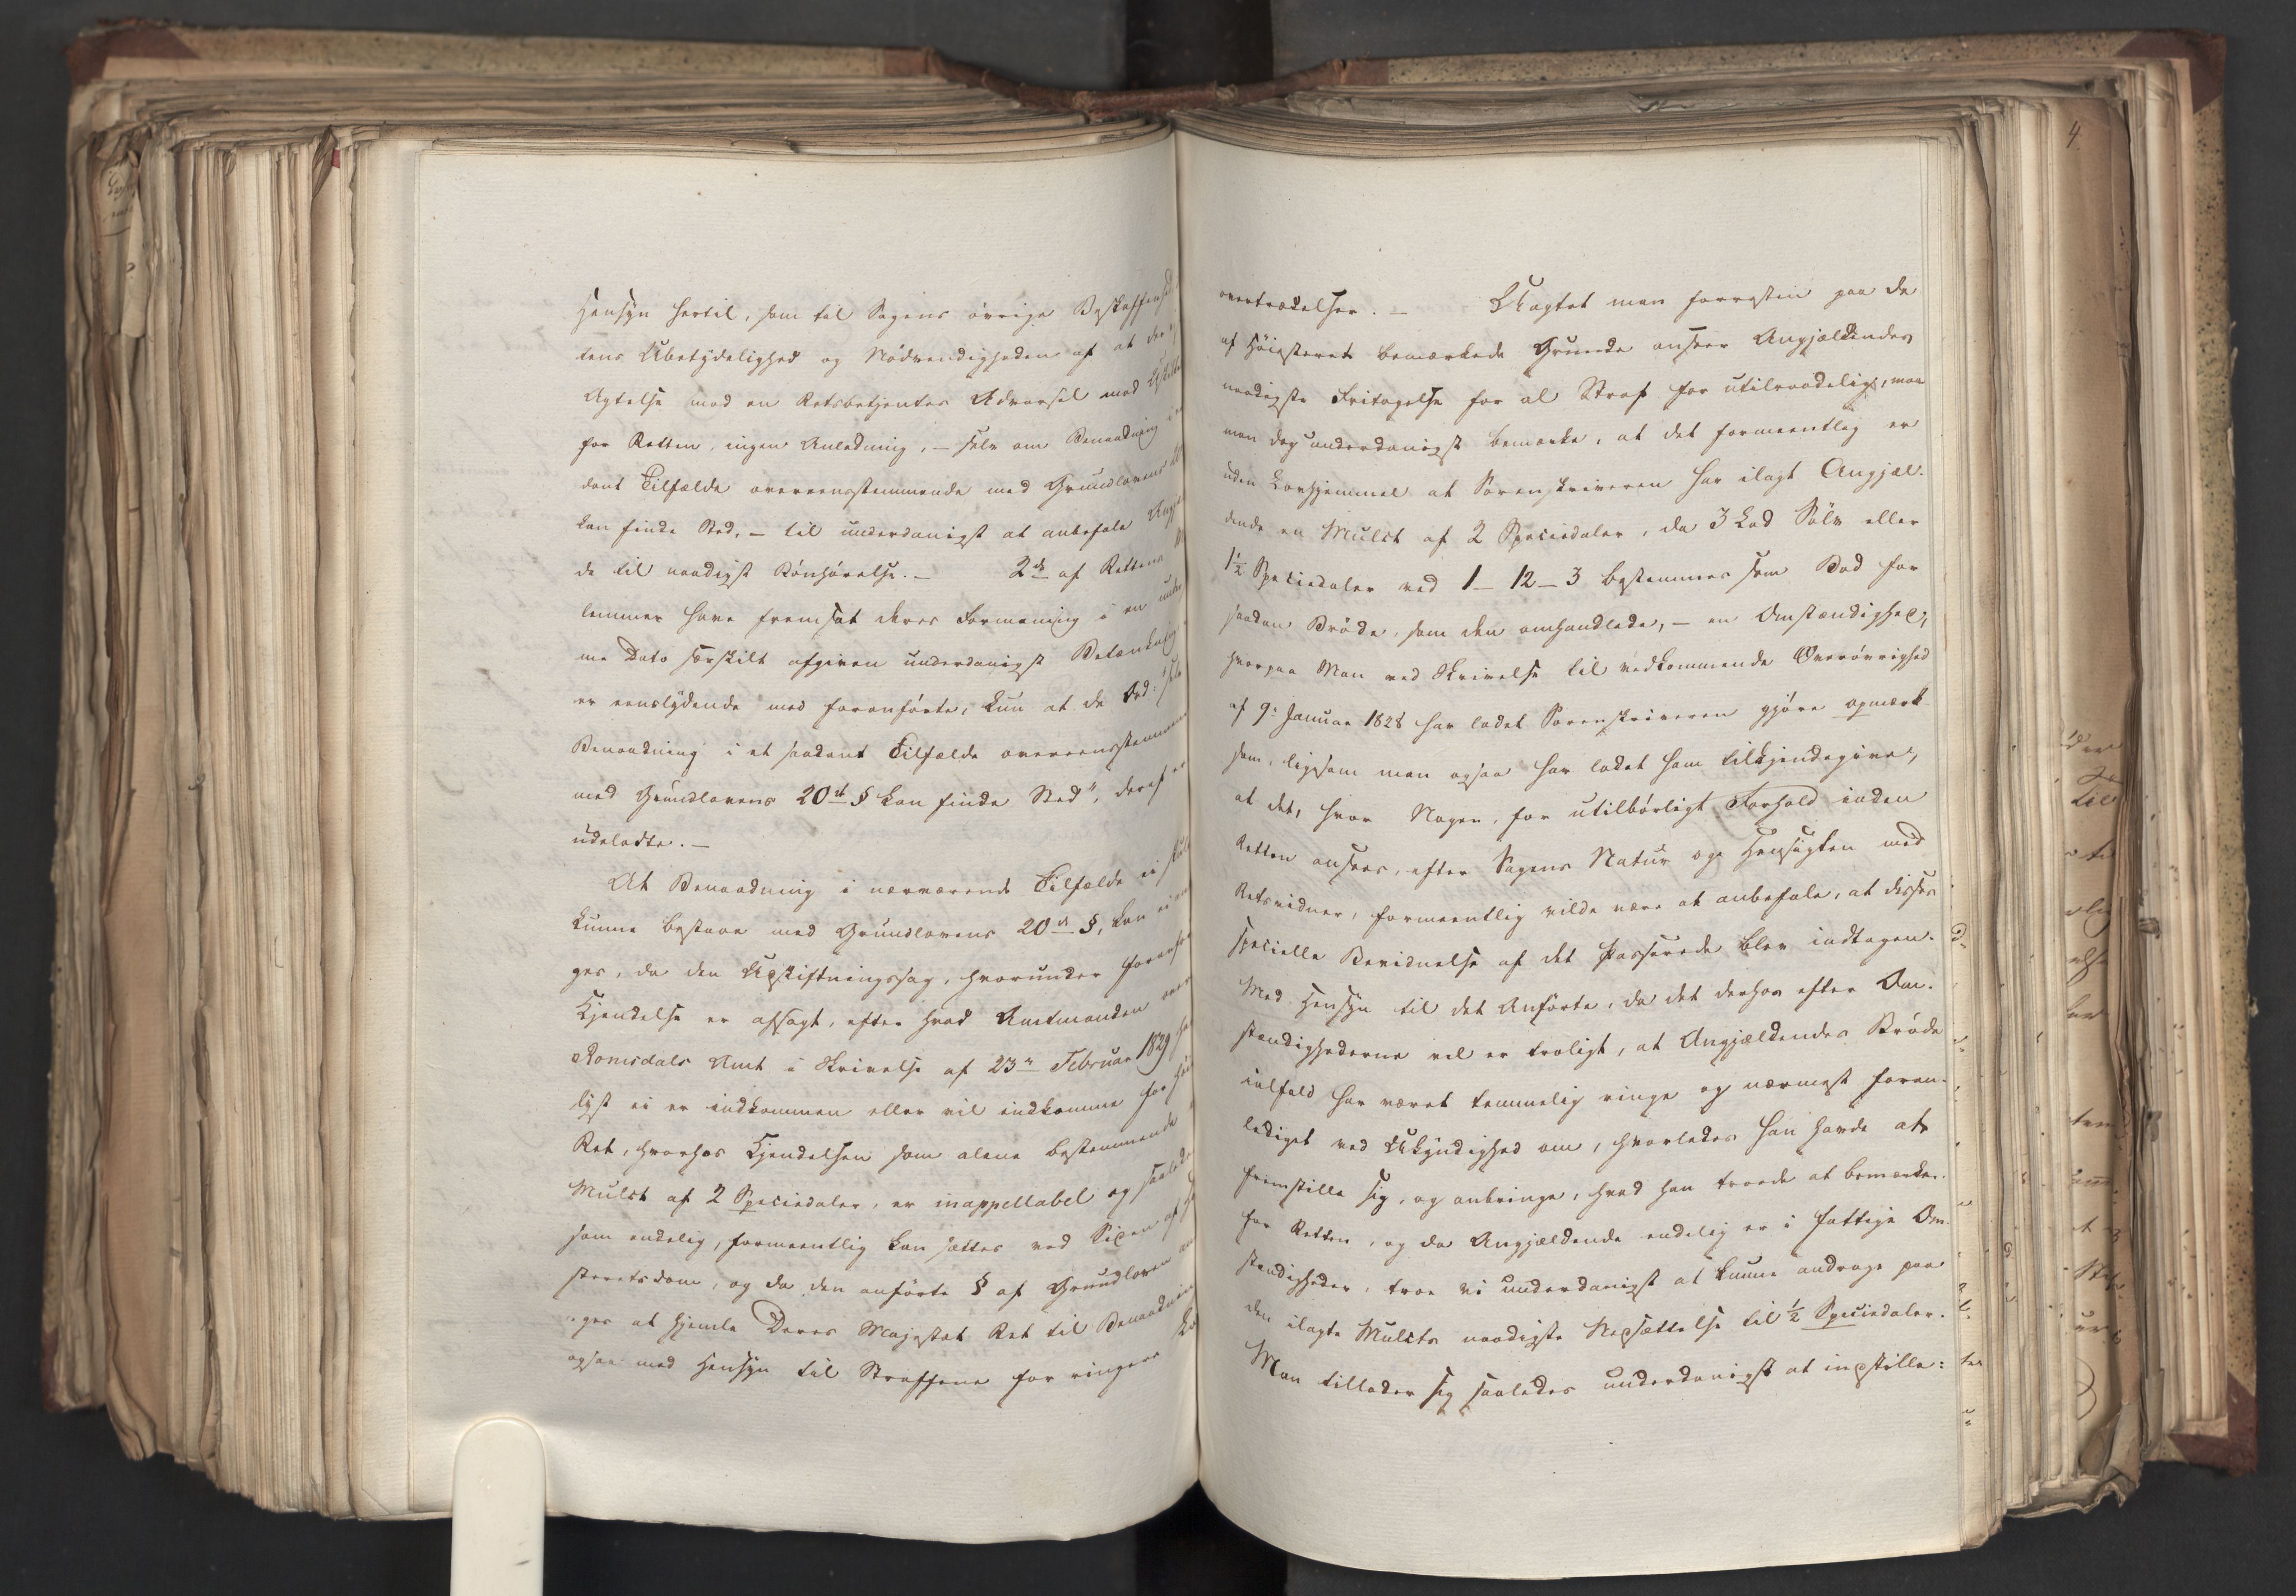 Hensyn hertil, som til Sagens øvrige Beskaffenhed,
tens Ubetydelighed og Nødvendigheden af at der
Agtelse mod en Retsbetjentes Advarsel mod
for Retten, ingen Anledning, – selv om Benaadning i
dant Tilfælde overeensstemmende med Grundlovens
kan finde Sted, – til underdanigst at anbefale
de til naadigst Bønhørelse. – 2de af Rettens
lemmer have fremsat deres Formening i en under
me Dato særskilt afgiven underdanigst Betænkning
er eenslydende med foranførte, kun at de Ord: "selv
Benaadning i et saadant Tilfælde overeensstemmende
med Grundlovens 20de § kan finde Sted", deraf er
udeladte. –
At Benaadning i nærværende Tilfælde ei skulde
kunne bestaae med Grundlovens 20de §, kan ei
ges, da den Udskiftningssag, hvorunder
Kjendelse er afsagt, efter hvad Amtmanden over
Romsdals Amt i Skrivelse af 23de Februar 1829 har
lyst ei er indkommen eller vil indkomme for
Ret, hvorhos Kjendelsen som alene bestemmende
Mulct af 2 Speciedaler, er inappellabel og saaledes
som endelig, formeentlig kan sættes ved Siden af
steretsdom, og da den anførte § af Grundloven
ges at hjemle Deres Majestæt Ret til Benaadning
ogsaa med Hensyn til Straffene for ringere
overtrædelser. – Uagtet man forresten paa de
af Høiesteret bemærkede Grunde anseer Angjældendes
naadigste Fritagelse for al Straf for utilraadelig, maa
man dog underdanigst bemærke, at det formeentlig er
uden Lovhjemmel at Sorenskriveren har ilagt Angjæl-
dende en Mulct af 2 Speciedaler, da 3 Lod Sølv eller
1½ Speciedaler ved 1–12–3 bestemmes som Bod for
saadan Brøde, som den omhandlede, – en Omstændighed,
hvorpaa Man ved Skrivelse til vedkommende Overøvrighed
af 9: Januar 1828 har ladet Sorenskriveren gjøre opmærk-
som, ligesom man ogsaa har ladet ham tilkjendegive,
at det, hvor Nogen, for utilbørligt Forhold inden
Retten ansees, efter Sagens Natur og Hensigten med
Retsvidner, formeentlig vilde være at anbefale, at disses
specielle Bevidnelse af det Passerede blev indtagen.
Med Hensyn til det Anførte, da det derhos efter Om-
stændighederne vel er troligt, at Angjældendes Brøde
ialfald har været temmelig ringe og nærmest foran-
lediget ved Ukyndighed om, hvorledes han havde at
fremstille sig, og anbringe, hvad han troede at bemærke
for Retten, og da Angjældende endelig er i fattige Om-
stændigheder, troe vi underdanigst at kunne andrage paa
den ilagte Mulcts naadigste Nedsættelse til ½ Speciedaler.
Man tillader sig saaledes underdanigst at indstille: